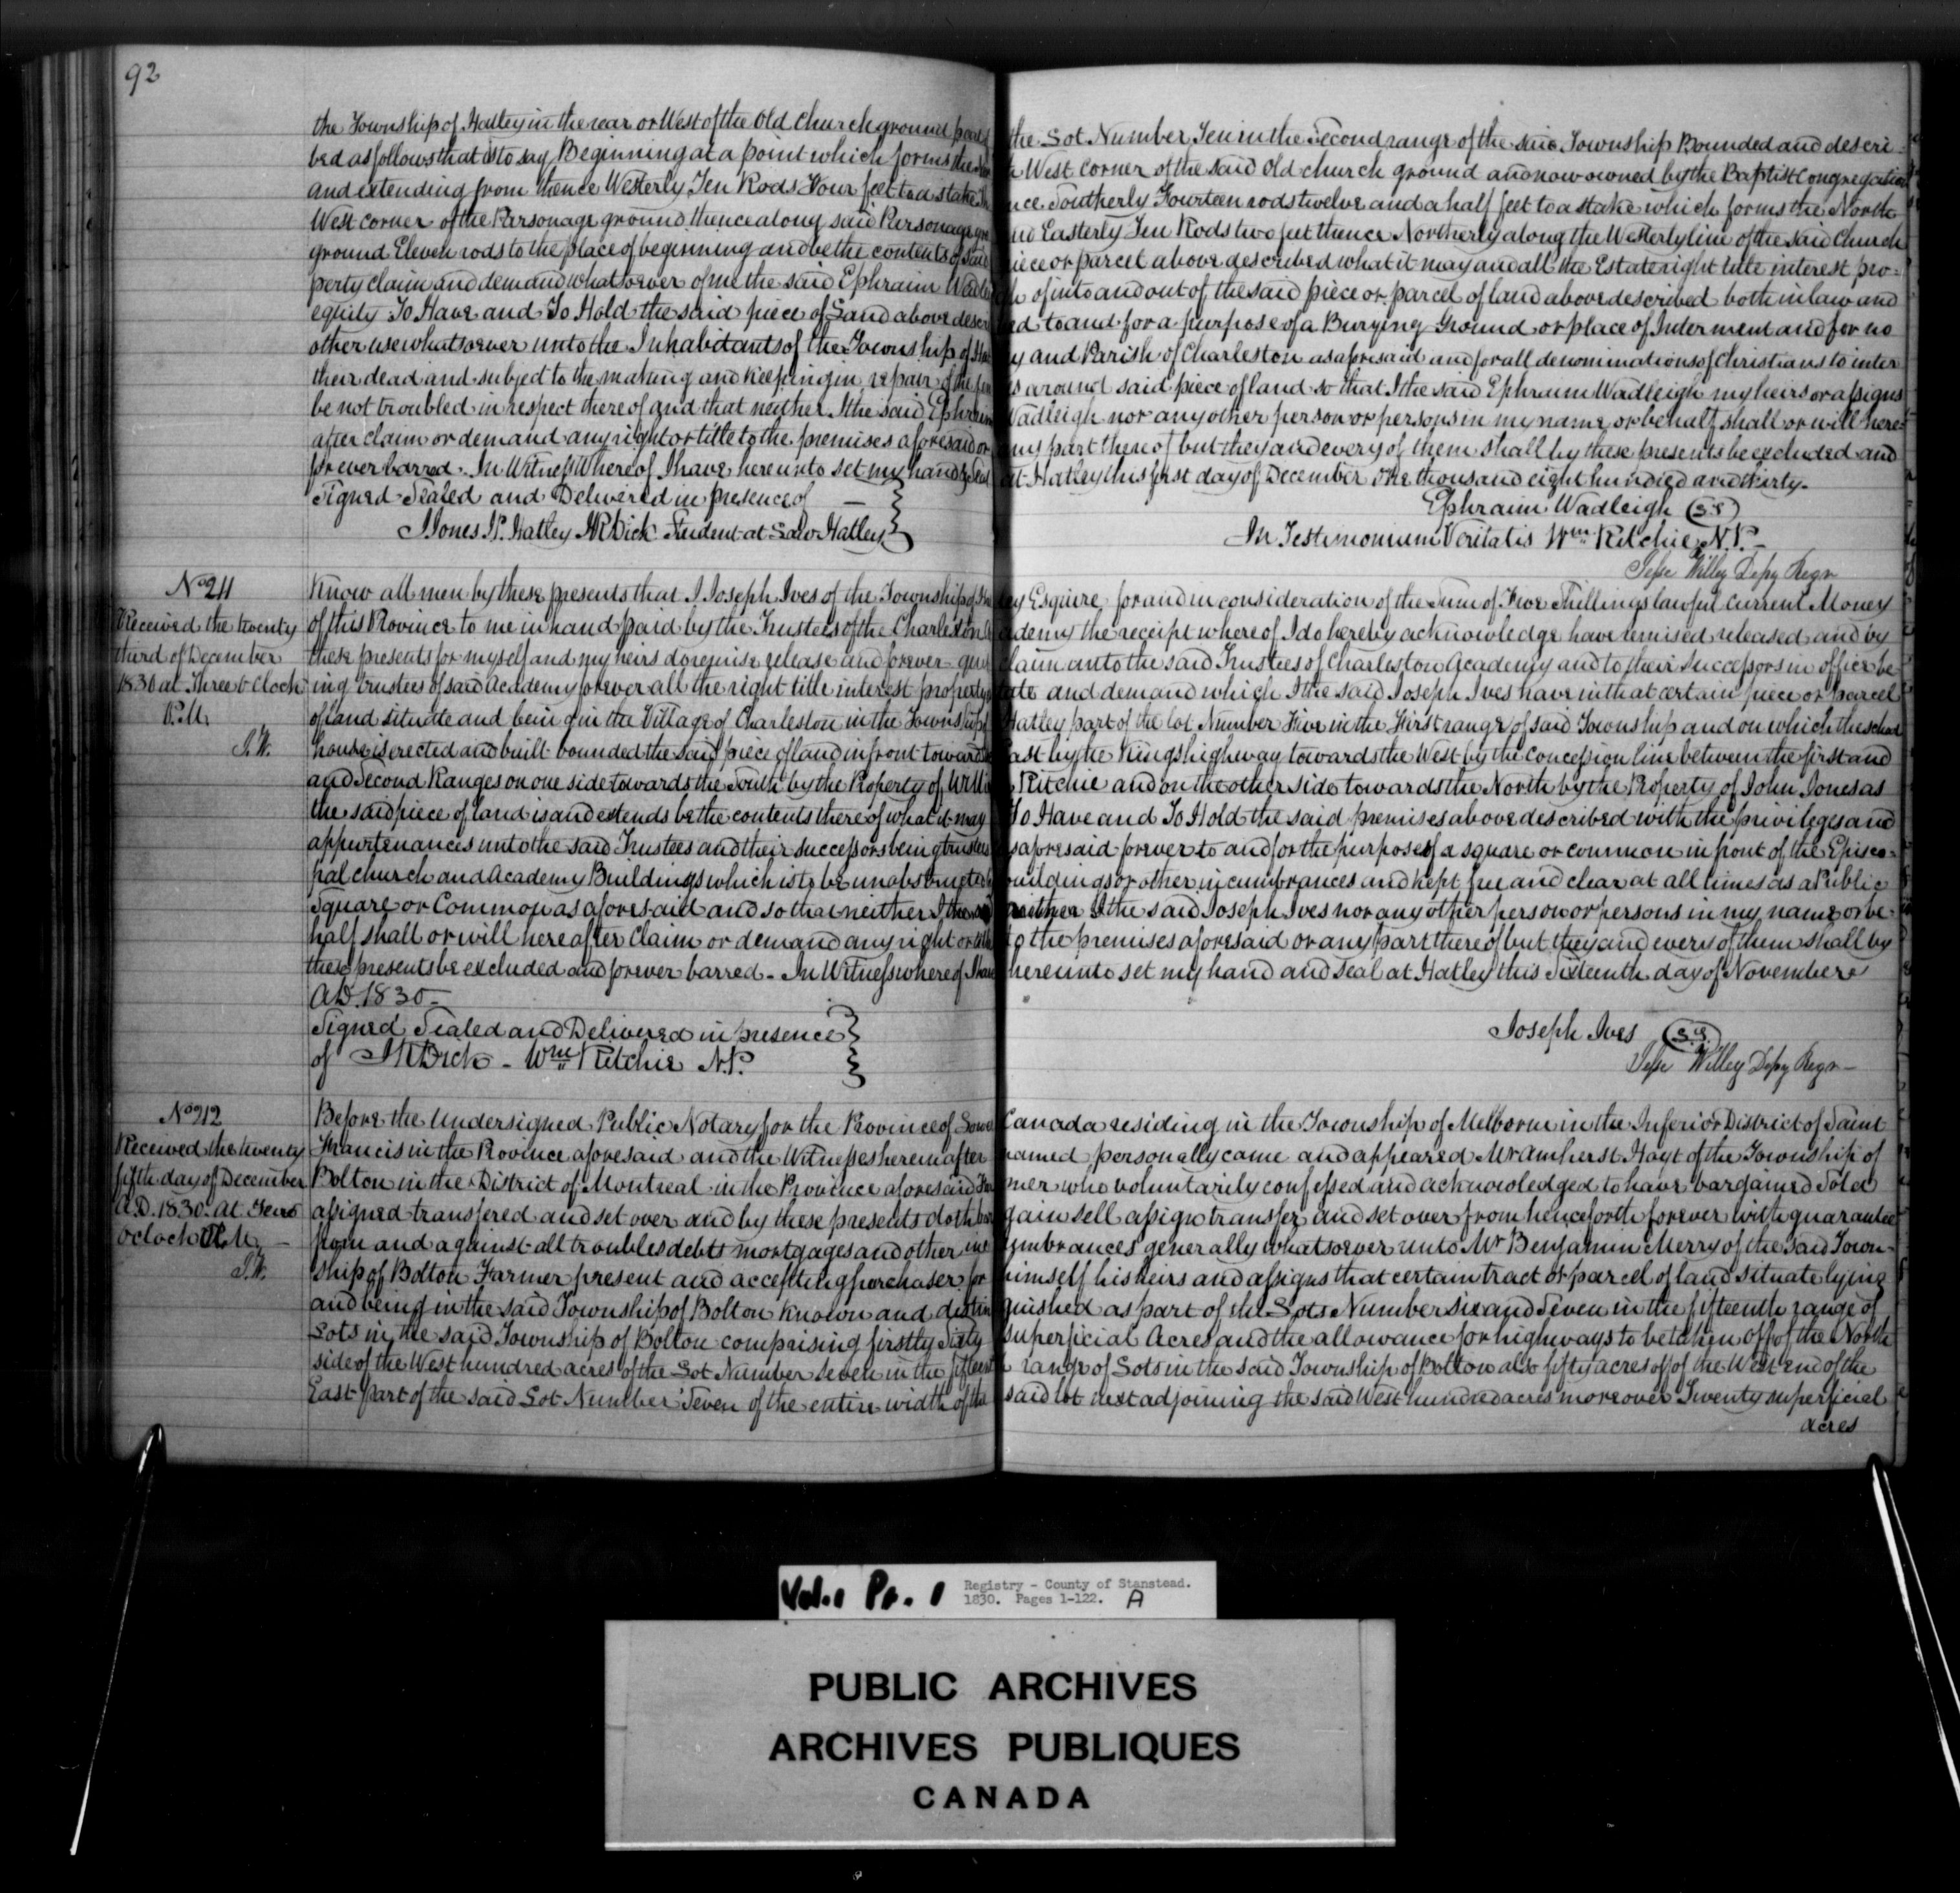 92
the Township of Hatley in the rear or West of the Old Church ground part of the Lot Number Ten in the Second range of the said Township Bounded and descri=
bed as follows that is to say Beginning at a point which forms the West Corner of the said Old church ground and now owned by the Baptist Congregation
and extending from thence Westerly Ten Rods Four feet to a stake thence Southerly Fourteen rods twelve and a half feet to a stake which forms the North
West corner of the Parsonage ground thence along said Parsonage Easterly Ten Rods two feet thence Northerly along the Westerly line of the said Church
ground Eleven rods to the place of beginning and be the contents of said piece or parcel above described what it may and all the Estate right title interest pro=
perty claim and demand whatsoever of me the said Ephraim Wadleigh of into and out of the said piece or parcel of land above described both in law and
equity To Have and To Hold the said piece of Land above described to and for a purpose of a Burying Ground or place of Interment and for no
other use whatsoever unto the Inhabitants of the Township of Hatley and Parish of Charleston as aforesaid and for all denominations of Christians to inter
their dead and subject to the making and keeping in repair of the fences around said piece of land so that I the said Ephraim Wadleigh my heirs or assigns
be not troubled in respect thereof and that neither I the said Ephraim Wadleigh nor any other person or persons in my name or behalf shall or will here=
after claim or demand any right or title to the premises aforesaid or any part thereof but they and every of them shall by these presents be excluded and
forever barred. In Witness Whereof I have hereunto set my hand & Seal at Hatley this first day of December One thousand eight hundred and thirty.
Signed Sealed and Delivered in presence of
Ephraim Wadleigh (L.S)
J Jones J.P. Hatley J R Dick Student at Law Hatley
In Testimonium Veritatis Wm Ritchie N.P.
Jesse Willey Depy Regr
No 211
Received the twenty
third of December
1830 at Three o Clock
P.M.
J.W.
Know all men by these presents that I Joseph Ives of the Township of Hatley Esquire for and in consideration of the Sum of Five Shillings lawful current Money
of this Province to me in hand paid by the Trustees of the Charleston Academy the receipt whereof I do hereby acknowledge have remised released and by
these presents for myself and my heirs do remise release and forever quit claim unto the said Trustees of Charleston Academy and to their Successors in office be
ing trustees of said Academy forever all the right title interest property estate and demand which I the said Joseph Ives have in that certain piece or parcel
of land situate and being in the Village of Charleston in the Township of Hatley part of the lot Number Five in the First range of said Township and on which the school
house is erected and built bounded the said piece of land in front towards the East by the Kings highway towards the West by the concession line between the first and
and Second Ranges on one side towards the South by the Property of William Ritchie and on the other side towards the North by the Property of John Jones as
the said piece of land is and extends be the contents thereof what it may To Have and To Hold the said premises above described with the privileges and
appurtenances unto the said Trustees and their successors being trustees as aforesaid forever to and for the purpose of a square or common in front of the Episco=
pal church and Academy Buildings which is to be unobstructed buildings or other incumbrances and kept free and clear at all times as a Public
Square or Common as aforesaid and so that neither I the said neither I the said Joseph Ives nor any other person or persons in my name or be=
half shall or will hereafter Claim or demand any right or title to the premises aforesaid or any part thereof but they and every of them shall by
these presents be excluded and forever barred - In Witness whereof I have hereunto set my hand and Seal at Hatley this Sixteenth day of November
AD. 1830-
Signed Sealed and Delivered in presence
of J R Dick - Wm Ritchie N.P.
Joseph Ives (L.S.)
Jesse Willey Depy Regr
No 212
Received the twenty
fifth day of December
A.D. 1830. At
oclock
J.W.
Before the Undersigned Public Notary for the Province of Lower Canada residing in the Township of Melborne in the Inferior District of Saint
Francis in the Province aforesaid and the Witnesses hereinafter named personally came and appeared Mr Amherst Hoyt of the Township of
Bolton in the District of Montreal in the Province aforesaid Farmer who voluntarily confessed and acknowledged to have bargained Sold
assigned transfered and set over and by these presents doth bargain sell assign transfer and set over from henceforth forever with guarantee
from and against all troubles debts mortgages and other incumbrances generally whatsoever unto Mr Benjamin Merry of the said Town=
ship of Bolton Farmer present and accepting purchaser for himself his heirs and assigns that certain tract or parcel of land situate lying
and being in the said Township of Bolton known and distinguished as part of the Lots Number Six and Seven in the fifteenth range of
Lots in the said Township of Bolton comprising firstly Sixty superficial Acres and the allowance for highways to be taken off of the North
side of the West hundred acres of the Lot Number Seven in the fifteenth range of Lots in the said Township of Bolton also fifty acres off of the West end of the
East part of the said Lot Number Seven of the entire width of the said lot next adjoining the said West hundred acres moreover Twenty superficial
acres
Vol. 1 Pt. 1
Registry - County of Stanstead.
1830. Pages 1-122. A
PUBLIC ARCHIVES
ARCHIVES PUBLIQUES
CANADA